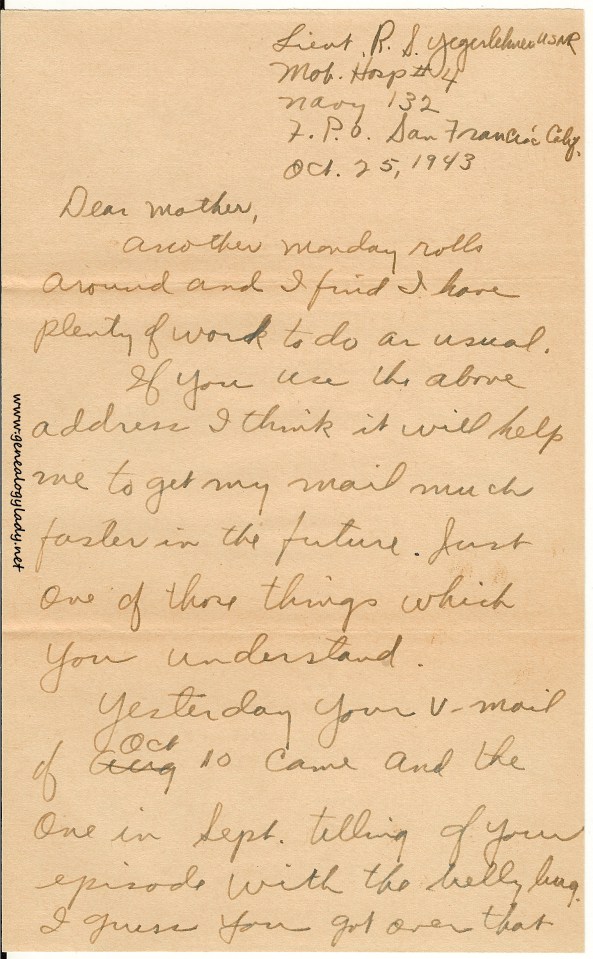 Lieut. R. S. Yegerlehner USNR
Mob. Hosp # 4
Navy 132
F. P. O. San Francisco Calif.
Oct. 25, 1943
Dear Mother,
Another Monday rolls
around and I find I have
plenty of work to do as usual.
If you use the above
address I think it will help
me to get my mail much
faster in the future. Just
one of those things which
you understand.
Yesterday your V-mail
Oct
of Aug 10 came and the
one in Sept. telling of your
episode with the belly bug.
I guess you got over that
www.genealogylady.net